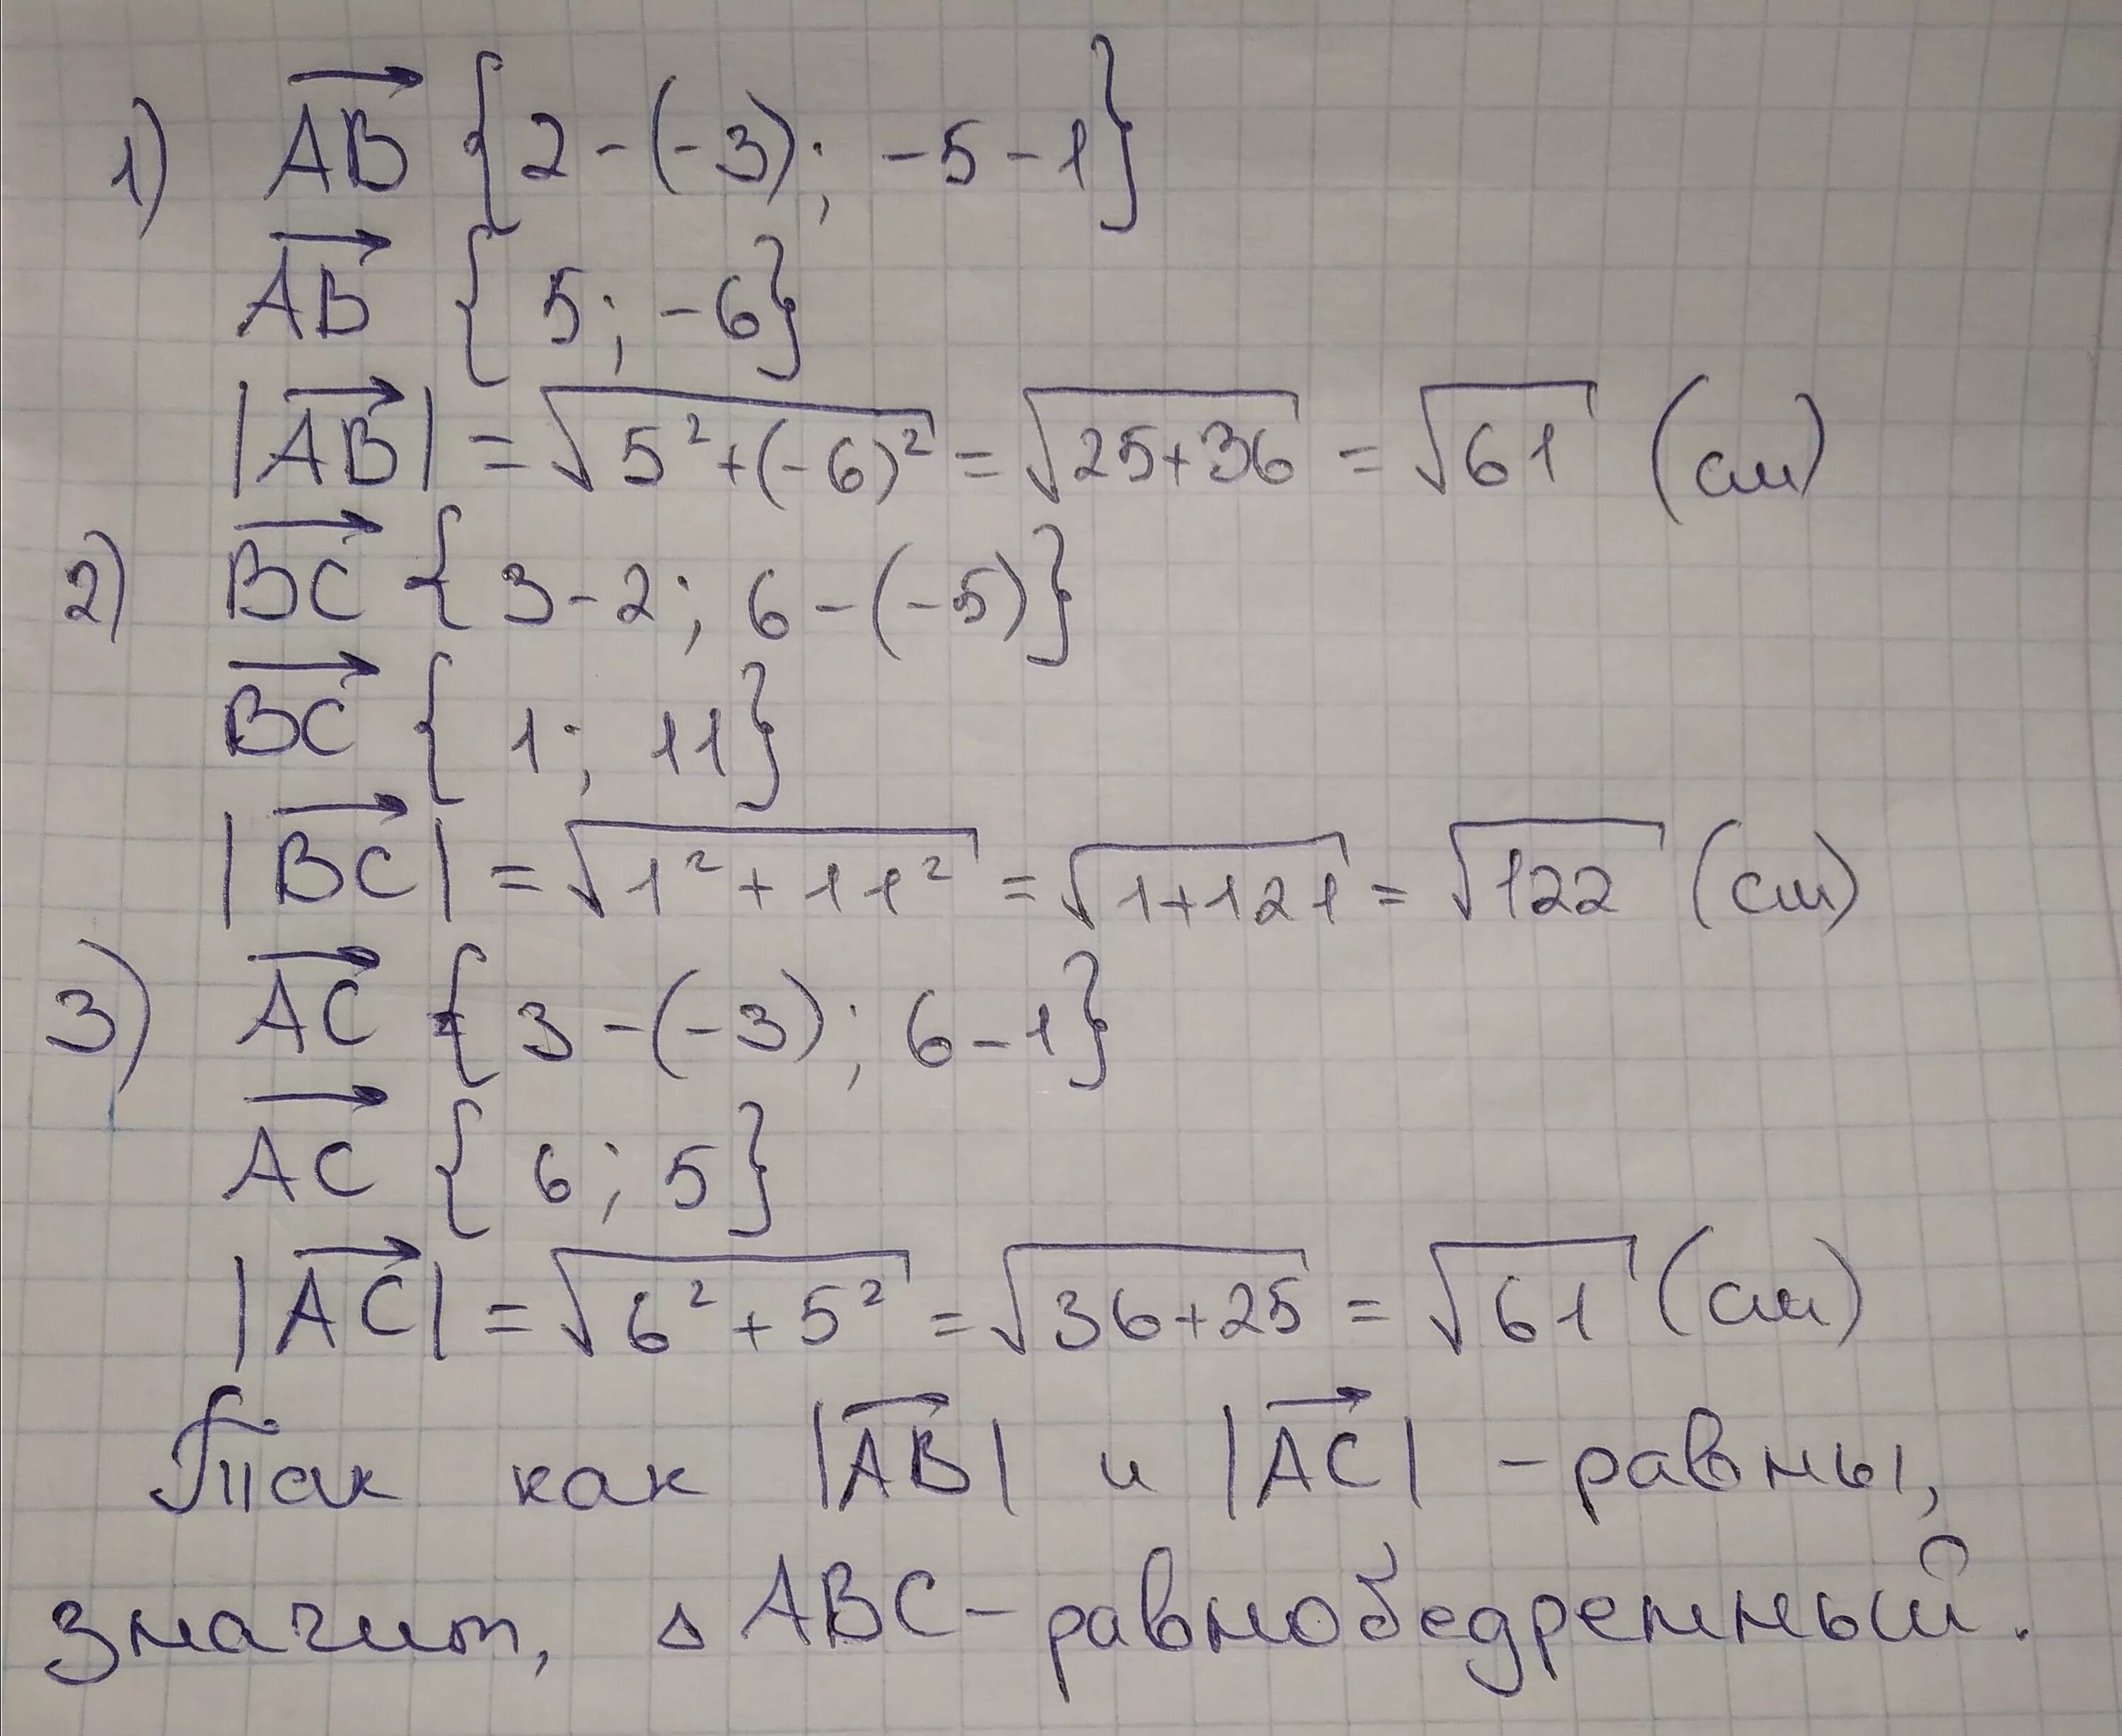 1) AB {2-(-3); -5-1}
AB {5; -6}
|AB| = √5²+(-6)² = √25+36 = √61 (см)
2) BC {3-2; 6-(-5)}
BC {1; 11}
|BC| = √1²+11² = √1+121 = √122 (см)
3) AC {3-(-3); 6-1}
AC {6; 5}
|AC| = √6²+5² = √36+25 = √61 (см)
Так как |AB| и |AC| - равны,
значит, △ ABC - равнобедренный.